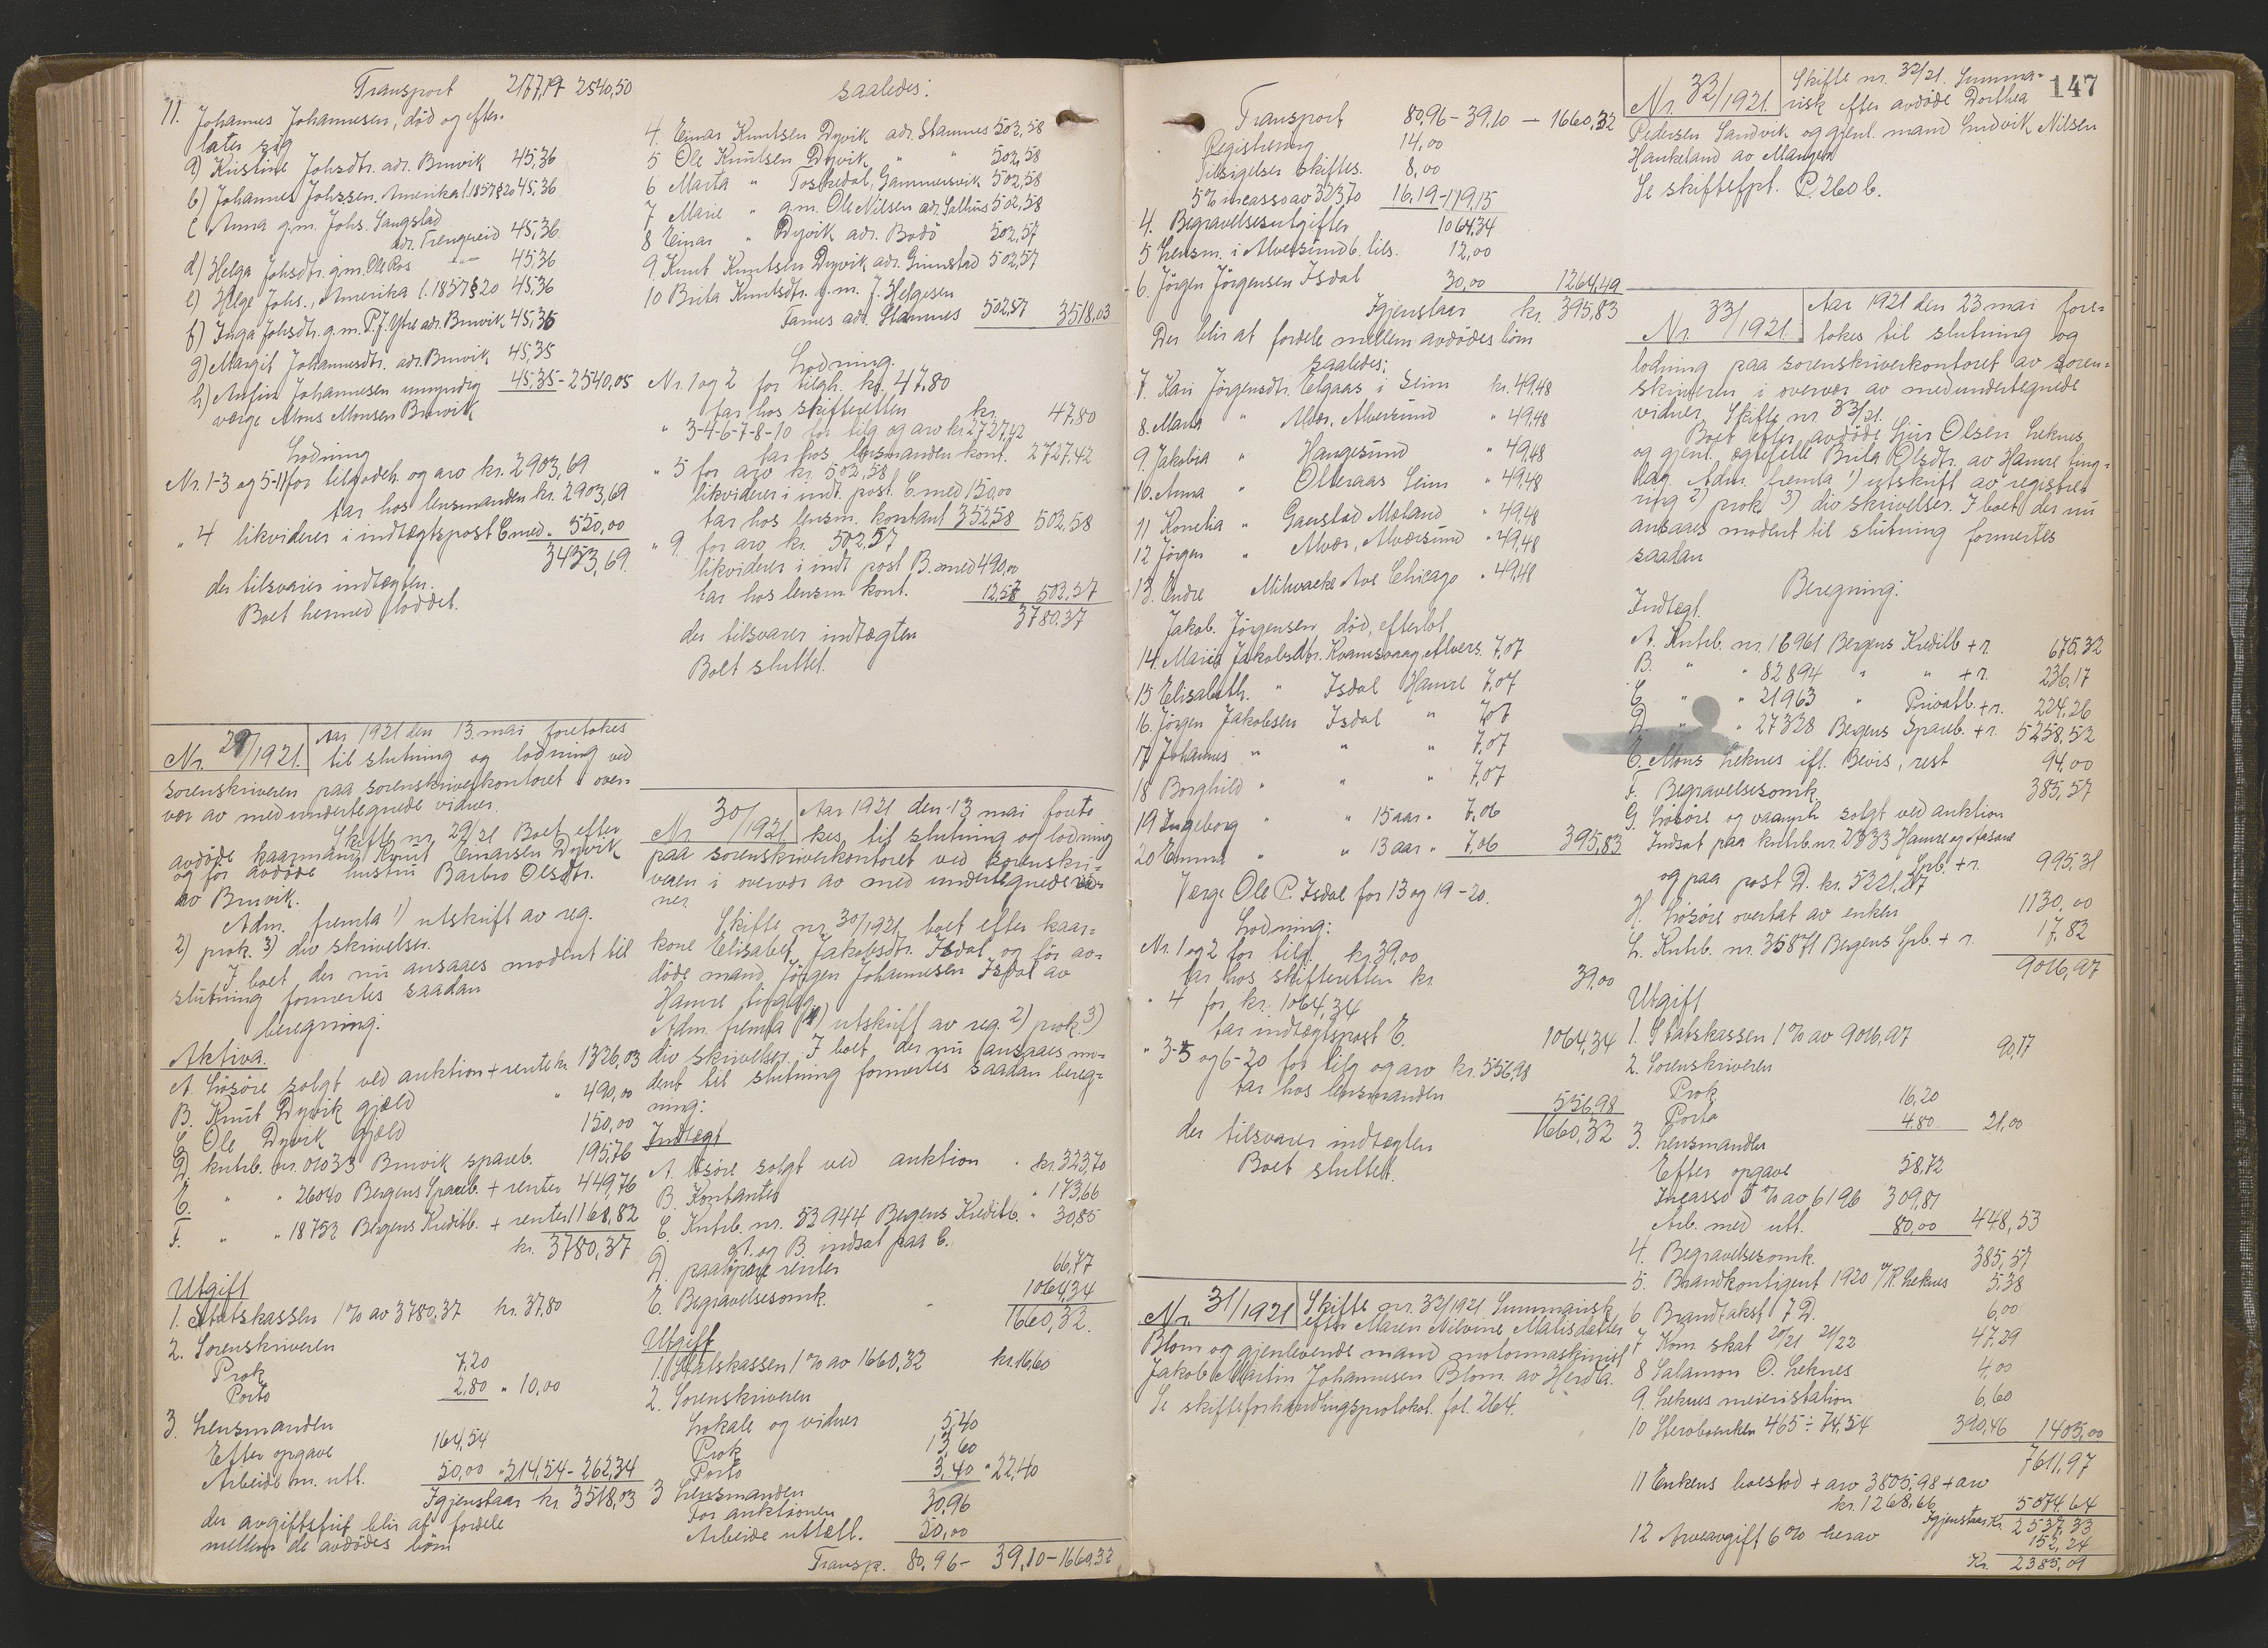 Transport 2177,19 2540,50
11. Johannes Johannesen, død og efter-
later sig
a) Kristine Johsdtr. adr. Bruvik 45,36
b) Johannes Johssen. Amerika l. 1857 § 20 45,36
c Anna g.m. Johs. Langstad
adr. Trengereid 45,36
d) Helga Johsdtr. g.m. Ole Ros -"- 45,36
e) Helge Johs., Amerika l. 1857 § 20 45,36
f) Inga Johsdtr. g.m. P.J. Ytre adr. Bruvik 45,35
g) Margit Johannesdtr. adr. Bruvik 45,35
h) Anfin Johannesen umyndig 45,35 - 2540,05
værge Mons Monsen Bruvik
Lodning
Nr. 1-3 og 5-11 for tilgodeh. og arv kr. 2903,69
tar hos lensmanden kr. 2903,69
" 4 likviderer i indtægtspost C med " 550,00
3453,69.
der tilsvarer indtægten.
Boet hermed sloddet.
Nr. 29/1921. Aar 1921 den 13. mai foretokes
til slutning og lodning ved
sorenskriveren paa sorenskriverkontoret i over-
vær av medundertegnede vidner.
Skifte nr. 29/21 Boet efter
avdöde kaarmand Knut Einarsen Dyvik
og før avdöde hustru Barbro Olsdtr.
av Bruvik.
Adm. fremla 1) utskrift av reg.
2) prok. 3) div skrivelser.
I boet der nu ansaaes modent til
slutning formertes saadan
beregning:
Aktiva.
A. Lösöre solgt ved auktion + rente kr 1326,03
B. Knut Dyvik gjæld " 490,00
C Ole Dyvik gjæld 150,00
D. kntrb. nr. 01033 Bruvik spareb. 195,76
E. " " 26040 Bergens Spareb. + renter 449,76
F. " " 18752 Bergens Kreditb. + renter 1168,82
kr. 3780,37
Utgift
1. Statskassen 1% av 3780.37 kr. 37,80
2. Sorenskriveren
Prok 7,20
Porto 2,80 " 10,00
3. Lensmanden
Efter opgave 164,54
Arbeide m. utl. 50,00 " 214,54 - 262,34
Igjenstaar kr. 3518,03
der avgiftsfrit blir at fordele
mellem de avdödes börn
saaledes:
4. Einar Knutsen Dyvik adr. Stamnes 502,58
5 Ole Knutsen Dyvik " " 502,58
6 Marta " Toskedal, Gammersvik 502,58
7 Marie " g.m. Ole Nilsen adr. Salhus 502,58
8 Einar " Dyvik adr. Bodö 502,57
9 Knut Knutsen Dyvik adr. Grimstad 502,57
10 Brita Knutsdtr. g.m. J. Helgesen
Fames adr. Stamnes 502,57 3518.03
Lodning.
Nr. 1 og 2 for tilgh. kr. 47,80
tar hos skifteretten kr. 47,80
" 3-4-6-7-8-10 for tilg og arv kr 2727,42
tar hos lensmanden kont. 2727.42
" 5 for arv kr. 502,58
likviderer i indt. post. C med 150,00
tar hos lensm. kontant 352,58 502,58
" 9. for arv kr. 502,57
likviderer i indt post B. med 490,00
tar hos lensm. kont. 12,57 502,57
3780.37
der tilsvarer indtægten
Boet sluttet.
Nr. 30/1921 Aar 1921 den 13 mai foreto
kes til slutning og lodning
paa sorenskriverkontoret ved sorenskri-
veren i overvær av med undertegnede vid-
ner.
Skifte nr. 30/1921 boet efter kaar-
kone Elisabet Jakobsdtr. Isdal og før av-
döde mand Jörgen Johannesen Isdal av
Hamre tinglag
Adm. fremla 1) utskrift av reg. 2) prok. 3)
div skrivelser. I boet der nu ansaaes mo-
dent til slutning formertes saadan bereg-
ning:
Indtægt
A lösöre solgt ved auktion " kr. 323,70
B. Kontanter " 173,66
C. Kntrb. nr. 52944 Bergens Kreditb. " 30,85
A. og B. indsat paa C.
D. paalöpne renter 66,77
E. Begravelsesomk. " 1064,34
1660,32.
Utgift
1. Statskassen 1% av 1660,32 kr. 16,60
2. Sorenskriveren
Lokale og vidner 5,40
Prok 13,60
Porto 3,40 " 22,40
3 Lensmanden
For auktionen 30,96
Arbeide uttæll. 50,00
Transp. 80,96 - 39,10 - 1660,32
147
Transport 80,96 - 39,10 - 1660,32
Registrering 14,00
Tilsigelser skiftes. 8,00
5% incasso av 323,70 16,19 - 119,15
4. Begravelsesutgifter 1064,34
5 Lensm. i Alversund b. tils. 12,00
6. Jörgen Jörgensen Isdal 30,00 1264,49
Igjenstaar kr. 395,83
Der blir at fordele mellem avdödes börn
saaledes:
7. Kari Jörgensdtr. Elgaas i Seim kr. 49,48
8. Marta " Alvær, Alversund " 49,48
9. Jakobia " Haugesund " 49,48
10. Anna " Olteraas Seim " 49,48
11 Kornelia " Gaustad Moland " 49,48
12 Jörgen " Alvær, Alversund " 49,48
13. Endre Milwaeke Ave Chicago " 49,48
Jakob Jörgensen död, efterlot
14. Maria Jakobsdtr. Kvamsvaag Alvers. 7,07
15 Elisabeth. " Isdal Hamre 7,07
16. Jörgen Jakobsen Isdal " 7,07
17 Johannes " " " 7,07
18 Borghild " " " 7,07
19 Ingeborg " " 15 aar " 7,06
20 Emma " " 13 aar " 7,06 395,83
Værge Ole P. Isdal for 13 og 19-20.
Lodning:
Nr. 1 og 2 for tilg. kr 39,00
tar hos skifteretten kr 39,00
" 4 for kr. 1064,34
tar indtægtspost E. 1064,34
" 3-5 og 6-20 for tilg og arv kr. 556,98
tar hos lensmanden 556,98
1660,32
der tilsvarer indtægten
Boet sluttet.
Nr. 31/1921 Skifte nr. 32/1921 Summarisk
efter Maren Nilvine Matisdatter
Blom og gjenlevende mand motormaskinist
Jakob Martin Johannesen Blom av Herdla.
Se skifteforhandlingsprotokol. fol. 264.
Nr. 32/1921. Skifte nr. 32/21. Summa-
risk efter avdöde Dorthea
Pedersen Sandvik og gjenl. mand Ludvik Nilsen
Haukeland av Manger
Se skiftefpt. P. 260 b.
Nr. 33/1921. Aar 1921 den 23 mai fore-
tokes til slutning og
lodning paa sorenskriverkontoret av soren-
skriveren i overvær av medundertegnede
vidner. Skifte nr. 33/21.
Boet efter avdöde Sjur Olsen Leknes
og gjenl. ægtefelle Brita Olsdtr. av Hamre ting-
lag. Adm. fremla 1) utskrift av registrer
ring 2) prok 3) div skrivelser. I boet der nu
ansaaes modent til slutning formertes
saadan
Beregning:
Indtægt.
A. Kntrb. nr. 16961 Bergens Kreditb + r. 675,32
B. " " 82894 " " + r. 236,17
C " " 21963 " Privatb. + r. 224,26
D " " 27328 Bergens Spareb. + r. 5258,52
E. Mons Leknes ifl. Bevis, rest 94,00
F. Begravelsesomk. 385,57
G. Lösöre og vaaningh. solgt ved auktion
Indsat paa kntrb. nr. 2333 Hamre og Aasane
Spb. + r. 995,31
og paa post D. kr. 5221,27
H. Lösöre overtat av enken 1130,00
L. Kntrb. nr. 35871 Bergens Spb. + r. 17,82
9016,97
Utgift
1. Statskassen 1% av 9016,97 90,17
2. Sorenskriveren
Prok 16,20
Porto 4,80 21,00
3. Lensmanden
Efter opgave 58,72
Incasso 5% av 6196 309,81
Arb. med utl. 80,00 448,53
4. Begravelsesomk. 385,57
5. Brandkontigent 1920 Leknes 5,38
6 Brandtakst 7 D. 6,00
7 Kom. skat 20/21 21/22 47,29
8 Salamon O. Leknes 4,00
9. Leknes meieristation 6,60
10 Sterboenken 465 ÷ 74,54 390,46 1405,00
7611,97
11 Enkens boeslod + arv 3805,98 + arv
kr. 1268,66 5074,64
Igjenstaar Kr. 2537,33
12 Arveavgift 6% herav 152,24
Kr. 2385,09